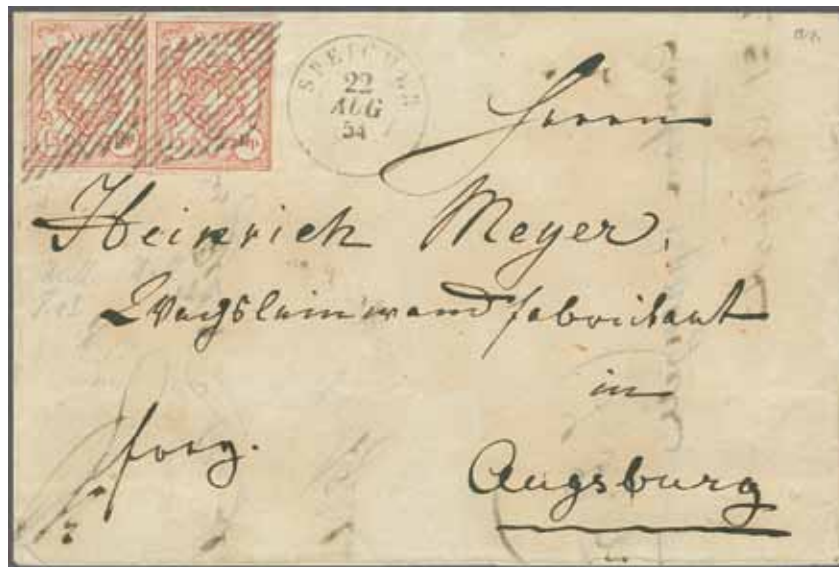 15 Rp. 15 Rp.
SPEICHER
22
AUG
54
Herrn
Heinrich Meyer,
Wachsleinwandfabrikant
in
Augsburg